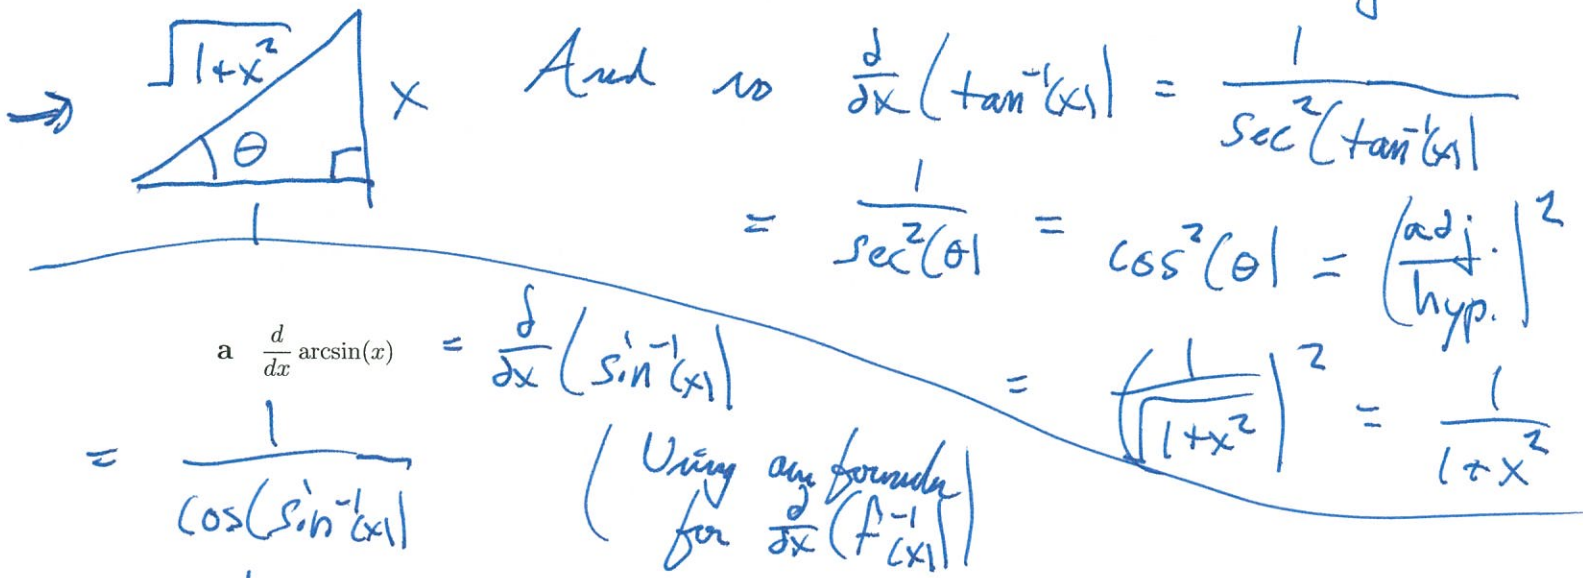 ⇒ √(1+x²) x θ 1
And so d/dx (tan⁻¹(x)) = 1/sec²(tan⁻¹(x))
= 1/sec²(θ) = cos²(θ) = (adj./hyp.)²
= (1/√(1+x²))² = 1/(1+x²)
a d/dx arcsin(x) = d/dx (sin⁻¹(x))
= 1/cos(sin⁻¹(x)) (Using our formula
for d/dx (f⁻¹(x)))